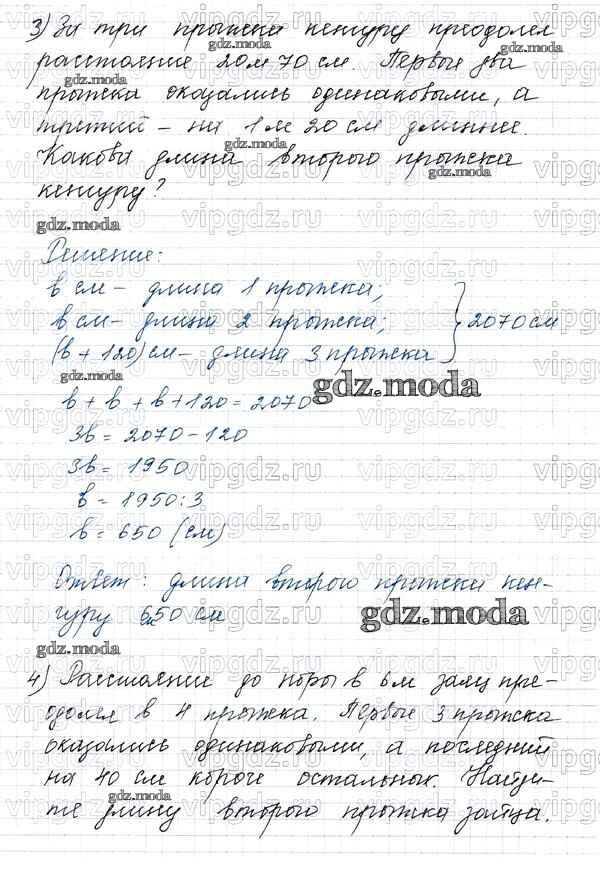 3) За три прыжка кенгуру преодолел
расстояние 20 м 70 см. Первые два
прыжка оказались одинаковыми, а
третий – на 1 м 20 см длиннее.
Какова длина второго прыжка
кенгуру?
gdz.moda
Решение:
b см – длина 1 прыжка;
b см – длина 2 прыжка;
(b + 120) см – длина 3 прыжка } 2070 см
gdz.moda
b + b + b + 120 = 2070
3b = 2070 – 120
3b = 1950
b = 1950 : 3
b = 650 (см)
Ответ: длина второго прыжка кен-
гуру 650 см
gdz.moda
4) Расстояние до норы в 6 м заяц пре-
одолел в 4 прыжка. Первые 3 прыжка
оказались одинаковыми, а последний
на 40 см короче остальных. Найди-
те длину второго прыжка зайца.